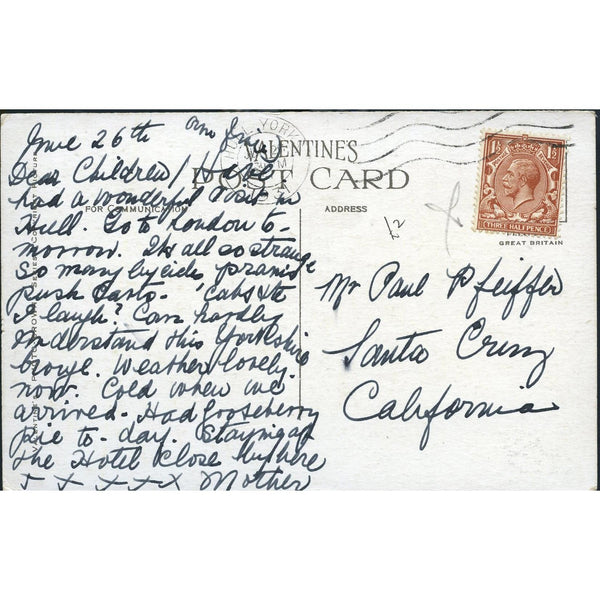 June 26th
Dear Children / Have
had a wonderful visit in
Hull. Go to London to-
morrow. It's all so strange
So many bycicles prams
push carts - Cabs etc
I laugh? Can hardly
understand this Yorkshire
brogue. Weather lovely
now. Cold when we
arrived. Had gooseberry
pie to-day. Staying at
the Hotel close by here
+ x x x x Mother
VALENTINE'S
POST CARD
FOR COMMUNICATION
ADDRESS
YORK
1½ 1½
THREE HALF PENCE
GREAT BRITAIN
Mr Paul Pfeiffer
Santa Cruz
California